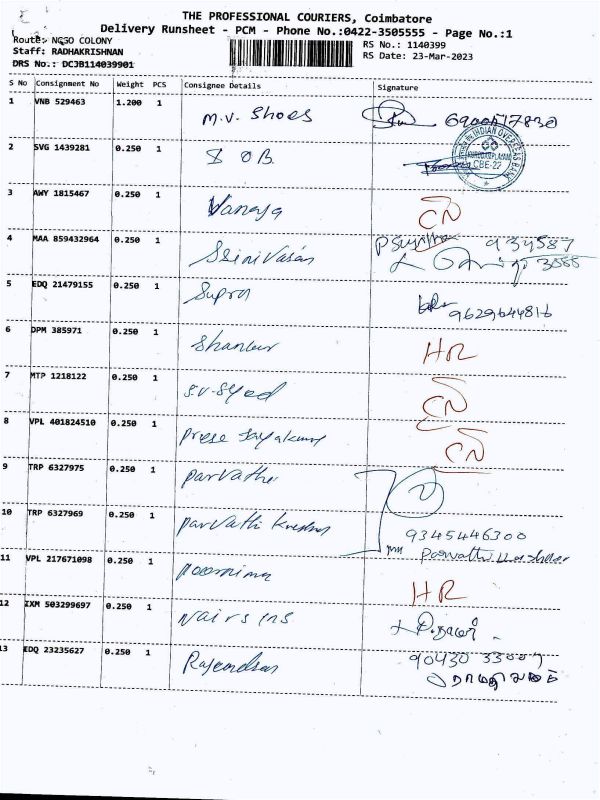 THE PROFESSIONAL COURIERS, Coimbatore
Delivery Runsheet - PCM - Phone No.:0422-3505555 - Page No.:1
Route: NGSO COLONY
RS No.: 1140399
Staff: RADHAKRISHNAN
RS Date: 23-Mar-2023
DRS No.: DCJB114039901
S No Consignment No Weight PCS Consignee Details Signature
1 VNB 529463 1.200 1 M.V. Shoes
2 SVG 1439281 0.250 1 I O B
INDIAN OVERSEAS BANK CBE-22
3 AWY 1815467 0.250 1 Vanaja
4 MAA 859432964 0.250 1 Srinivasan 934587
3055
5 EDQ 21479155 0.250 1 Supra
9629644816
6 DPM 385971 0.250 1 Shankar HR
7 MTP 1218122 0.250 1 S.V. Syed
8 VPL 401824510 0.250 1
9 TRP 6327975 0.250 1 Parvathi
10 TRP 6327969 0.250 1 Parvathi Krishna 9345446300
11 VPL 217671098 0.250 1 Poornima HR
12 IXM 503299697 0.250 1 Nairs ins
13 EDQ 23235627 0.250 1 Rajendran 90430 33007